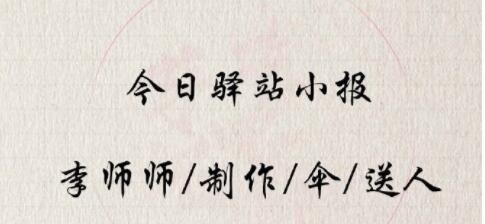 今日驿站小报
李师师/制作/伞/送人